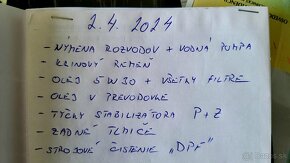 2.4.2024
- VÝMENA ROZVODOV + VODNÁ PUMPA
- KLINOVÝ REMEŇ
- OLEJ 5W30 + VŠETKY FILTRE
- OLEJ V PREVODOVKE
- TYČKY STABILIZÁTORA P+Z
- ZADNÉ TLMIČE
- STROJOVÉ ČISTENIE "DPF"